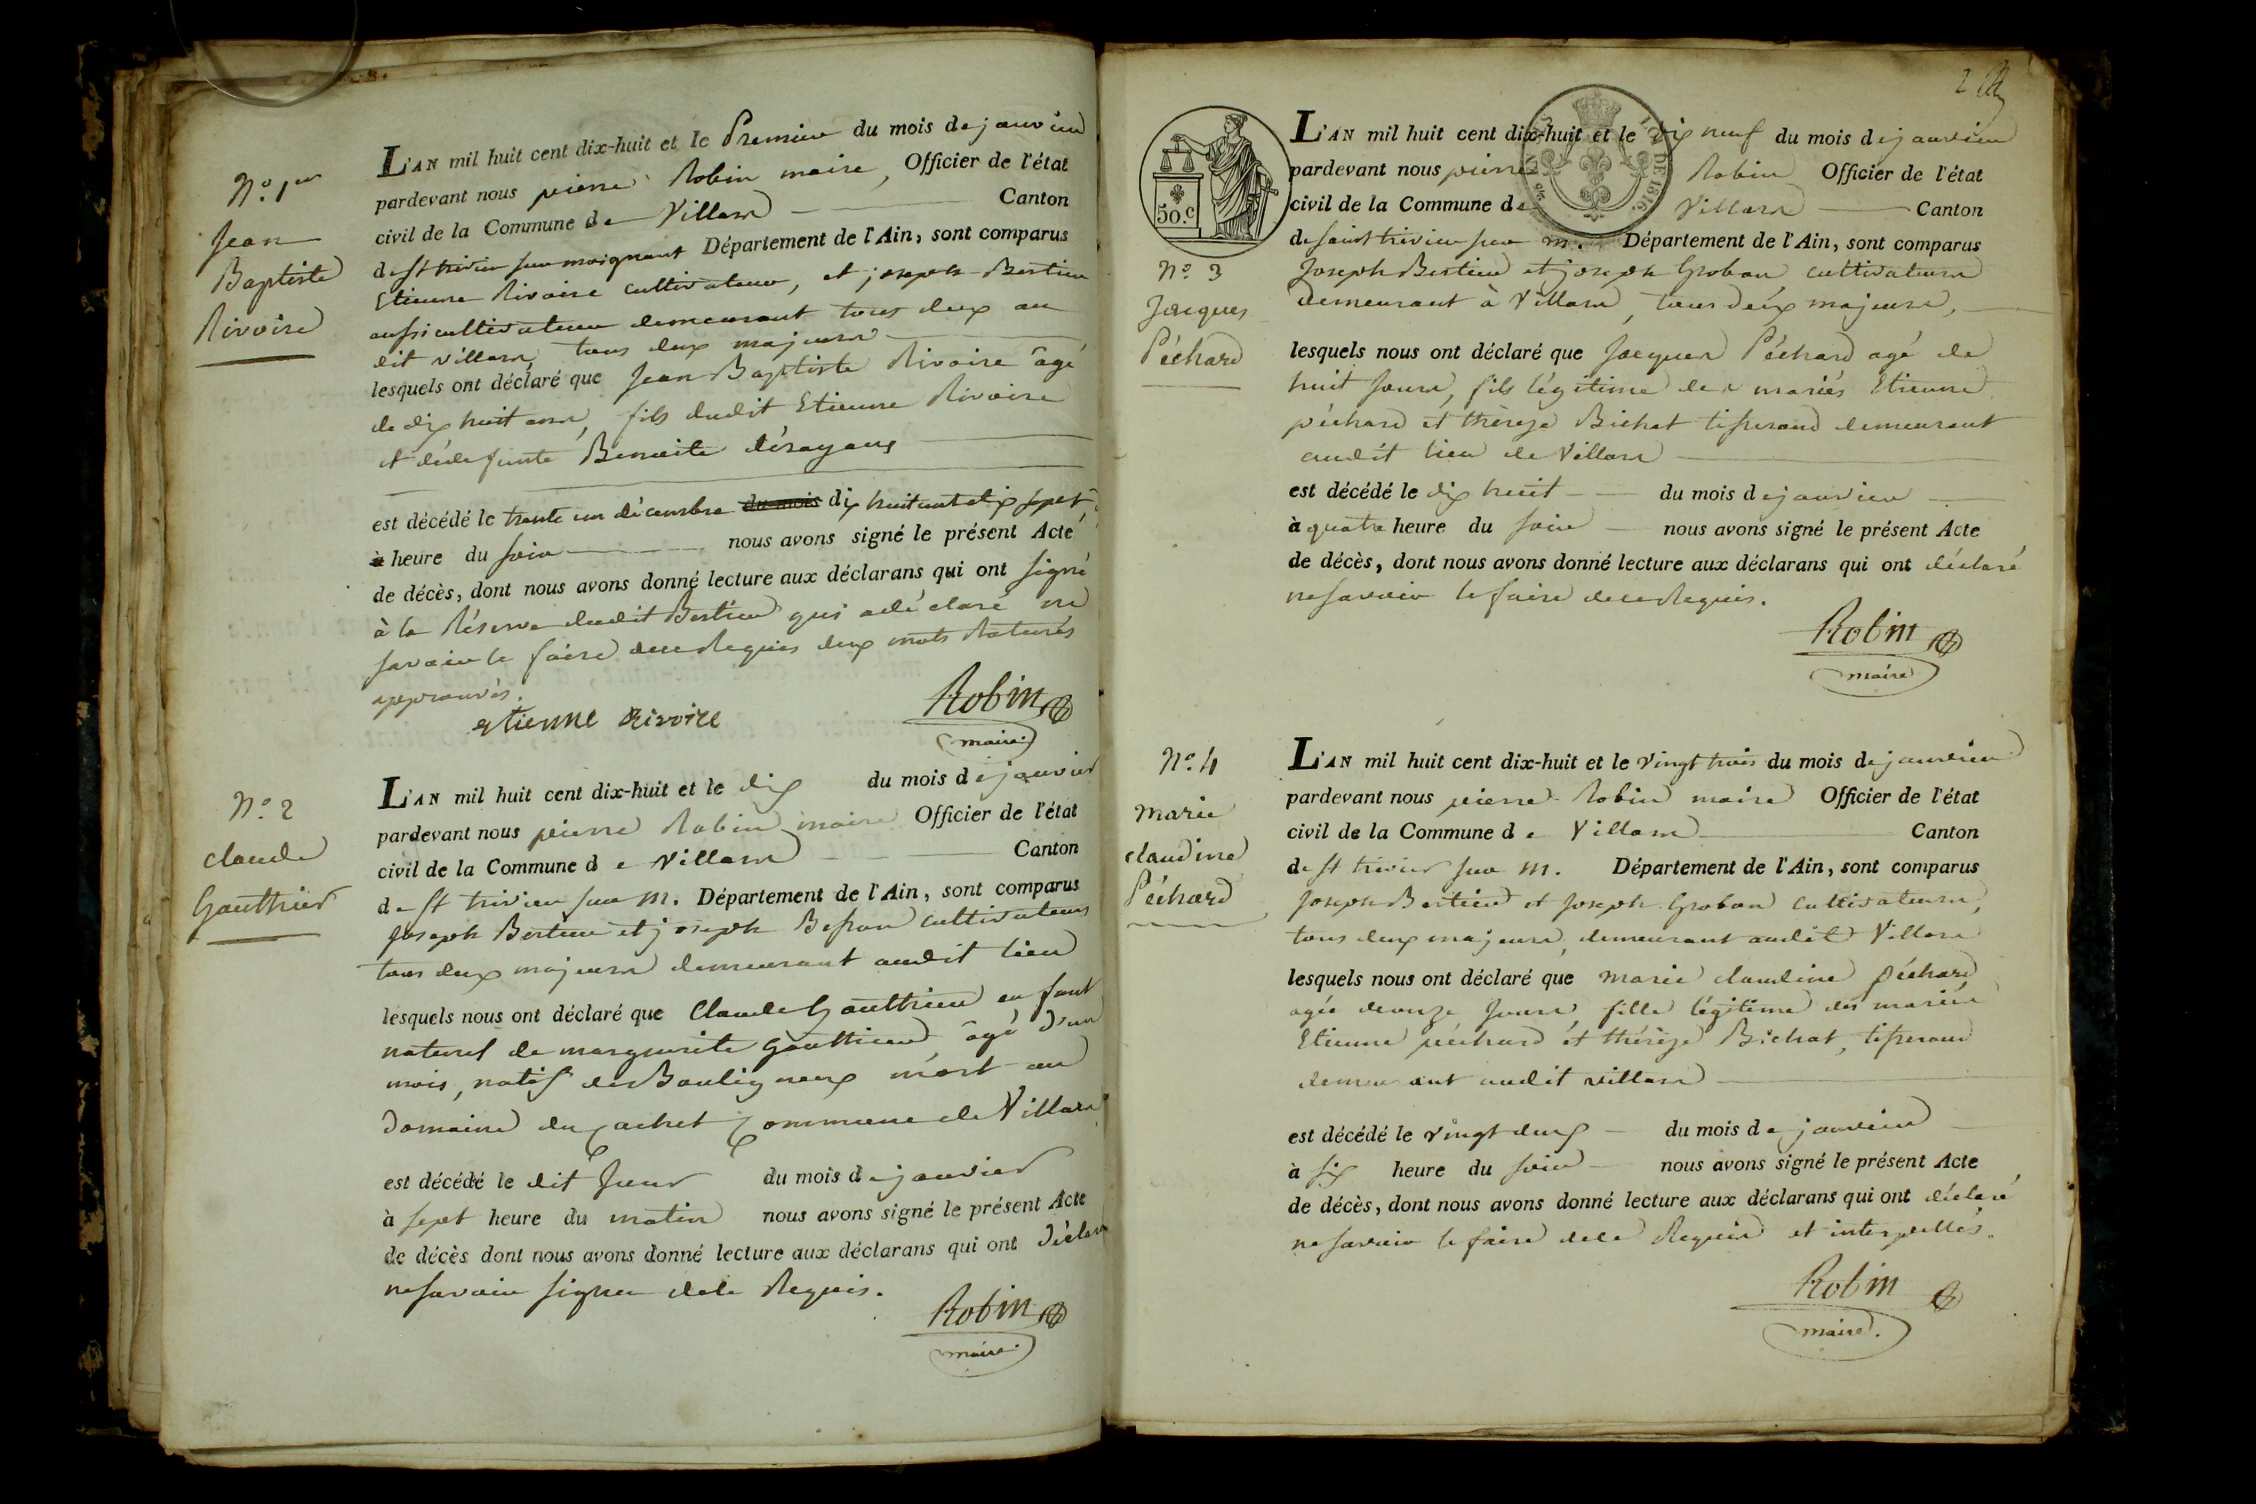 N.o 1er
Jean
Baptiste
Rivoire
L'AN mil huit cent dix-huit et le Premier du mois de janvier
pardevant nous pierre Robin maire, Officier de l'état
civil de la Commune de Villars Canton
de St trivier sur moignant Département de l'Ain, sont comparus
Etienne Rivoire cultivateur, et joseph Bertier
aussi cultivateur demeurant tous deux au
dit villars, tous deux majeurs
lesquels ont déclaré que Jean Baptiste Rivoire âgé
de dix huit ans, fils dudit Etienne Rivoire
et de defunte Benoite
est décédé le trente un décembre du mois dix huit cent dix sept,
à heure du soir nous avons signé le présent Acte
de décès, dont nous avons donné lecture aux déclarans qui ont signé
à la Réserve dudit Bertier qui a déclaré ne
savoir le faire de ce Requis deux mots Raturés
approuvés.
etienne Rivoire Robin
maire
N.o 2
claude
Gauthier
L'AN mil huit cent dix-huit et le dix du mois de janvier
pardevant nous pierre Robin maire Officier de l'état
civil de la Commune de Villars Canton
de St trivier sur M. Département de l'Ain, sont comparus
Joseph Bertier et joseph cultivateurs
tous deux majeurs demeurant audit lieu
lesquels nous ont déclaré que Claude Gauthier enfant
naturel de marguerite Gauthier âgé d'un
mois, natif de Bouligneux mort au
Domaine du cachet Commune de Villars
est décédé le dit Jour du mois de janvier
à sept heure du matin nous avons signé le présent Acte
de décès dont nous avons donné lecture aux déclarans qui ont Déclaré
ne savoir signer de ce Requis.
Robin
maire
2
50.c
LOI DE 1816.
N.o 3
Jacques
Péchard
L'AN mil huit cent dix-huit et le dix neuf du mois de janvier
pardevant nous pierre Robin Officier de l'état
civil de la Commune de Villars Canton
de saint trivier sur M. Département de l'Ain, sont comparus
Joseph Bertier et joseph Groban cultivateurs
demeurant à Villars, tous deux majeurs,
lesquels nous ont déclaré que Jacques Péchard agé de
huit Jours, fils légitime des mariés Etienne
péchard et thérèze Bichat tisserand demeurant
audit lieu de Villars
est décédé le dix huit du mois de janvier
à quatre heure du soir nous avons signé le présent Acte
de décès, dont nous avons donné lecture aux déclarans qui ont déclaré
ne savoir le faire de ce Requis.
Robin
maire
N.o 4
marie
claudine
Péchard
L'AN mil huit cent dix-huit et le vingt trois du mois de janvier
pardevant nous pierre Robin maire Officier de l'état
civil de la Commune de Villars Canton
de St trivier sur M. Département de l'Ain, sont comparus
Joseph Bertier et Joseph Groban cultivateurs,
tous deux majeurs, demeurant audit Villars
lesquels nous ont déclaré que marie claudine péchard
agée de onze Jours fille légitime des mariés
Etienne péchard et thérèze Bichat, tisserand
demeurant audit villars
est décédé le vingt deux du mois de janvier
à six heure du soir nous avons signé le présent Acte
de décès, dont nous avons donné lecture aux déclarans qui ont déclaré
ne savoir le faire de ce Requis et interpellés.
Robin
maire.